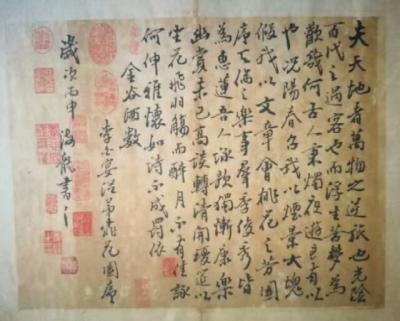 夫天地者萬物之逆旅也光陰
百代之過客也而浮生若夢為
歡幾何古人秉燭夜遊良有以
也況陽春召我以煙景大塊
假我以文章會桃花之芳園
序天倫之樂事羣季俊秀皆
為惠連吾人詠歌獨慚康樂
幽賞未已高談轉清開瓊筵以
坐花飛羽觴而醉月不有佳詠
何伸雅懷如詩不成罰依
金谷酒數
李白宴諸弟桃花園序
歲次丙申海龍書